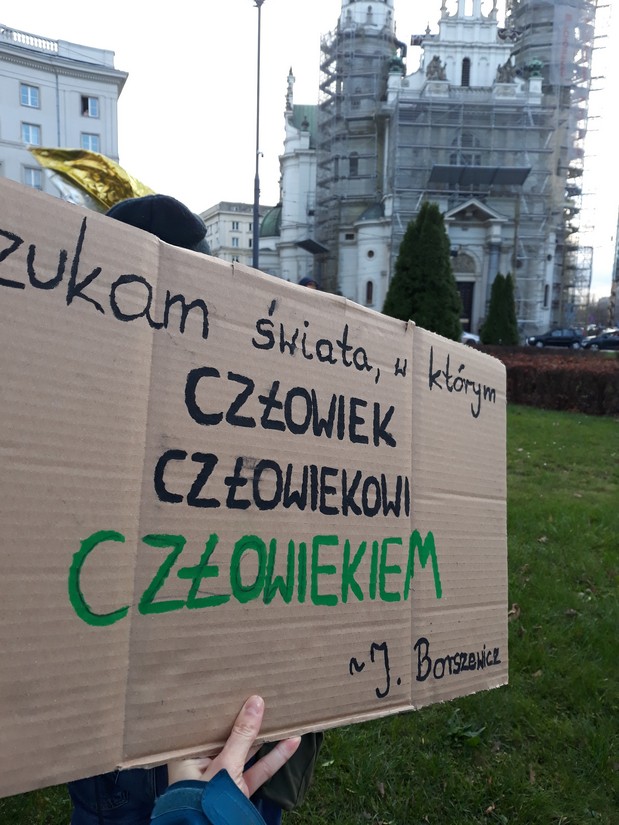 zukam świata, w którym
CZŁOWIEK
CZŁOWIEKOWI
CZŁOWIEKIEM
~J. Borszewicz